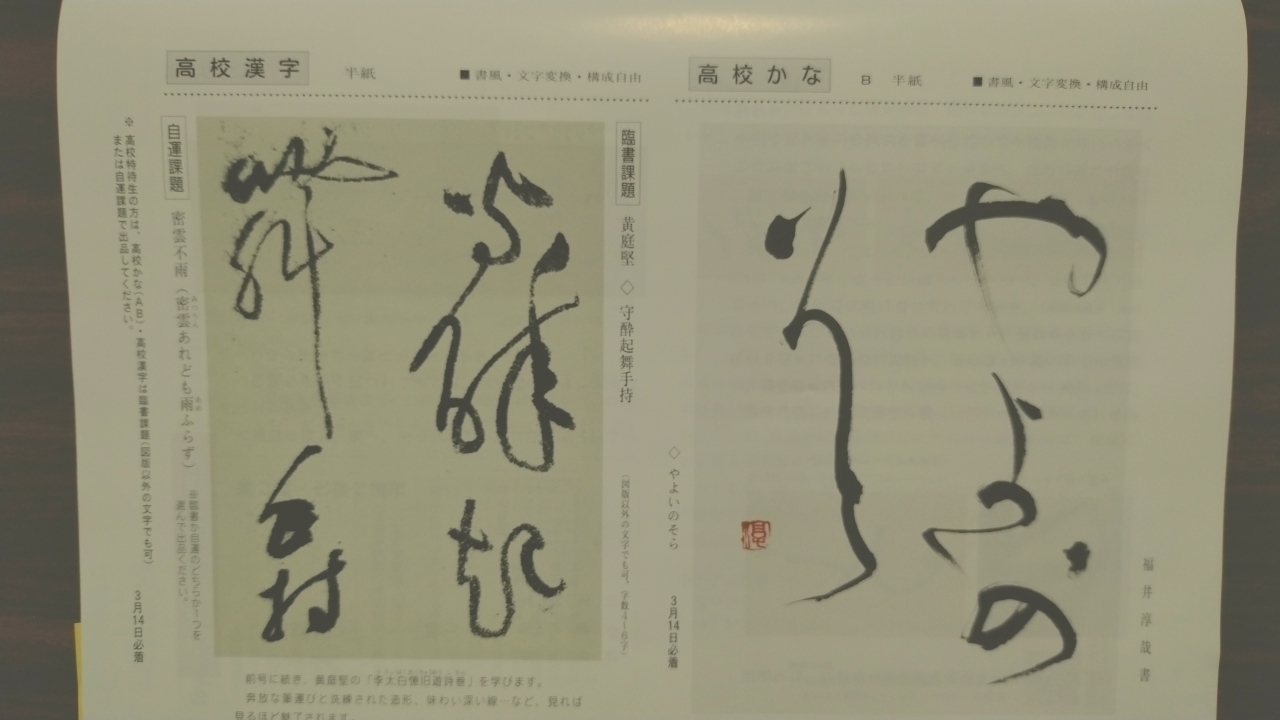 高校かな B 半紙 ■書風・文字変換・構成自由
福井淳哉書
やよいの
そら
◇やよいのそら 3月14日必着
高校漢字 半紙 ■書風・文字変換・構成自由
臨書課題 黄庭堅 ◇ 守酔起舞手持 (図版以外の文字でも可。字数4~6字)
守酔起
舞手持
自運課題 密雲不雨(密雲あれども雨ふらず) ※臨書か自運のどちらか1つを
選んで出品ください。
※高校特待生の方は、高校かな(AB)・高校漢字は臨書課題(図版以外の文字でも可)
または自運課題で出品してください。 3月14日必着
前号に続き、黄庭堅の「李太白憶旧遊詩巻」を学びます。
奔放な筆運びと洗練された造形、味わい深い線…など、見れば
見るほど魅了されます。